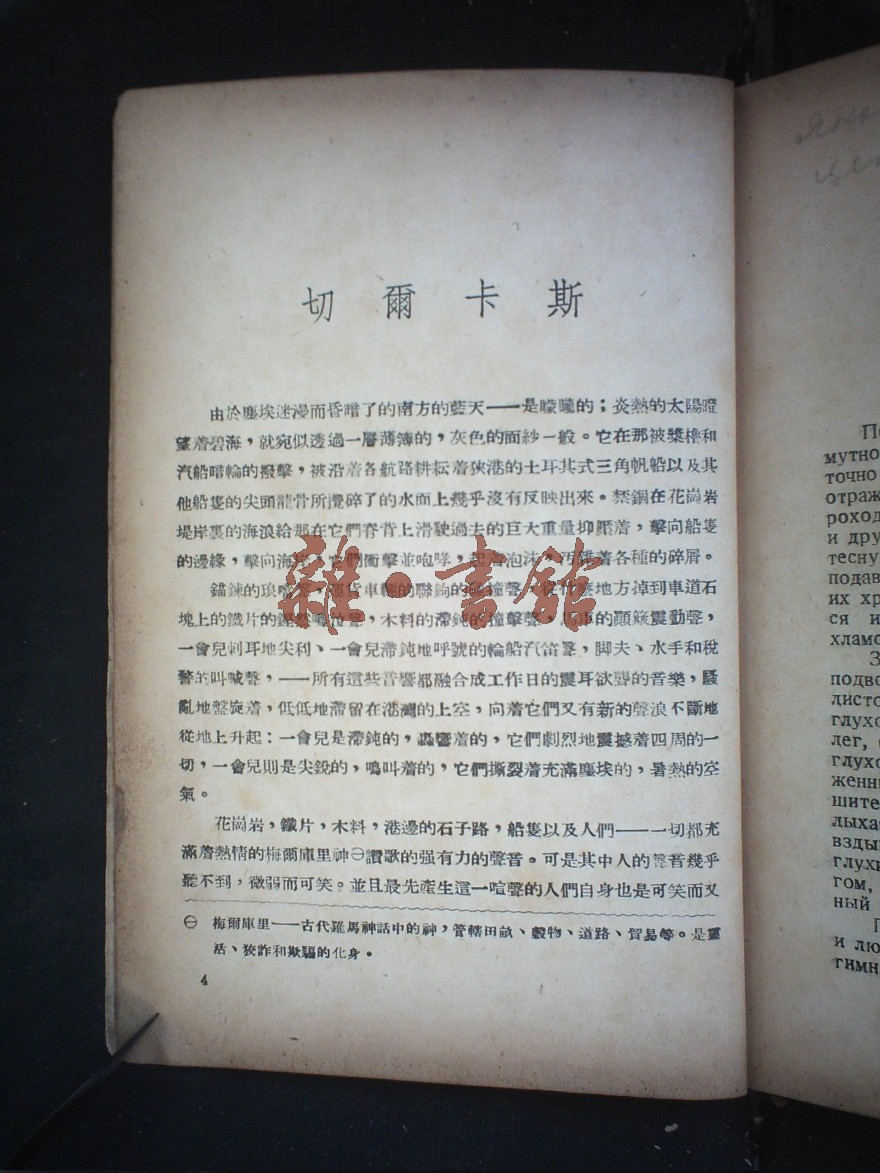 切爾卡斯
由於塵埃迷漫而昏暗了的南方的藍天——是朦朧的;炎熱的太陽瞪
望着碧海,就宛似透過一層薄簿的,灰色的面紗一般。它在那被槳櫓和
汽船暗輪的撥擊,被沿着各航路耕耘着狹港的土耳其式三角帆船以及其
他船隻的尖頭龍骨所攪碎了的水面上幾乎沒有反映出來。禁錮在花崗岩
堤岸裏的海浪給那在它們脊背上滑駛過去的巨大重量抑壓着,擊向船隻
的邊緣,擊向海岸,它們衝擊並咆哮,起着泡沫,污雜着各種的碎屑。
錨鍊的琅噹聲,運貨車輛的聯鉤的碰撞聲,從什麼地方掉到車道石
塊上的鐵片的鏗然鳴聲,木料的滯鈍的撞擊聲,馬車的顚簸震動聲,
一會兒刺耳地尖利、一會兒滯鈍地呼號的輪船汽笛聲,脚夫、水手和稅
警的叫喊聲,——所有這些音響都融合成工作日的震耳欲聾的音樂,騷
亂地盤旋着,低低地滯留在港灣的上空,向着它們又有新的聲浪不斷地
從地上升起:一會兒是滯鈍的,轟響着的,它們劇烈地震撼着四周的一
切,一會兒則是尖銳的,鳴叫着的,它們撕裂着充滿塵埃的,暑熱的空
氣。
花崗岩,鐵片,木料,港邊的石子路,船隻以及人們——一切都充
滿着熱情的梅爾庫里神㊀讚歌的强有力的聲音。可是其中人的聲音幾乎
聽不到,微弱而可笑。並且最先產生這一喧聲的人們自身也是可笑而又
㊀ 梅爾庫里——古代羅馬神話中的神,管轄田畝、穀物、道路、貿易等。是靈
活、狡詐和欺騙的化身。
4
雜·書館
мутно
точно
отраж
роход
и дру
тесну
подав
их хр
ся и
хламо
подво
дисто
глухо
лег,
глухо
женны
шите
лыха
взды
глухи
гом,
ный
и лю
гимн